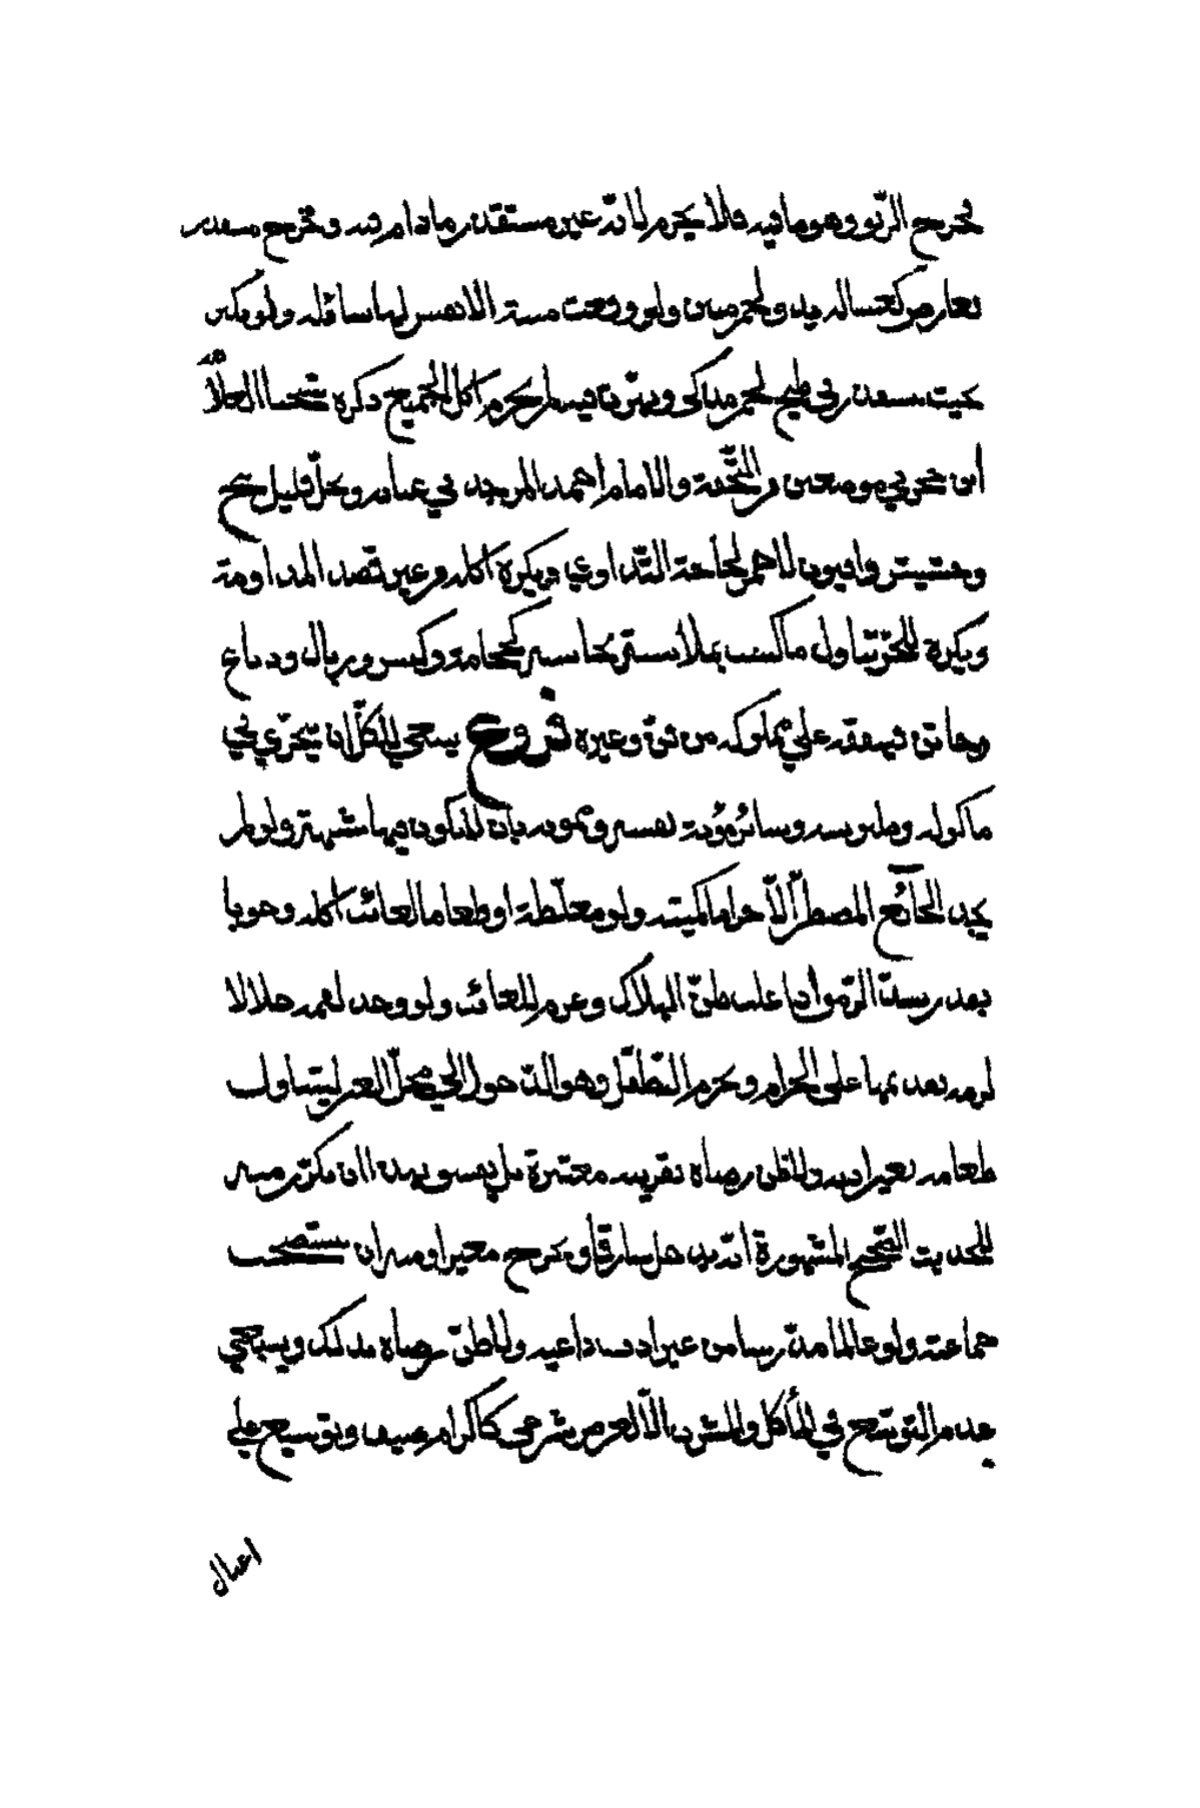 فخرج الربو وهو ما فيه فلا يحرم لانه غير مستقذر ما دام فيه وخرج مستقذر
بعارض كغسالة يد ولحم منتن ولو وقعت ميتة لا نفس لها سائلة ولو بكثر
بحيث مستقذر في طبيخ لحم مذكى ويهرت فيه لم يحرم اكل الجميع ذكره شيخنا العلامة
ابن حجر في موضعين من التحفة والامام احمد المزجد في عبابه ويحل قليل بنج
وحشيش وافيون لا خمر لحاجة التداوي ويكره اكله من غير قصد المداومة
ويكره للحر تناول ما كسب بملابسة نجاسة كحجامة وكنس وزبال ودباغ
وخاتن فينفقه على مملوكه من قن وغيره فروع ينبغي للكل ان يتحرى في
ماكوله وملبوسه وسائر مؤنة نفسه وممونه بان لا يكون فيها شبهة ولو لم
يجد الجائع المضطر الا حراما كميتة ولو مغلظة او طعاما لغائب اكله وجوبا
بعد رسد الرمق ان غلب ظن الهلاك وغرم للغائب ولو وجد لقمة حلالا
لزمه تقديمها على الحرام ويحرم التطفل وهو الدخول الى محل الغير ليتناول
طعامه بغير اذنه ولا ظن رضاه بقرينة معتبرة بل يفسق بهذا ان تكرر منه
للحديث الصحيح المشهورة انه يدخل سارقا ويخرج مغيرا ومنه ان يستصحب
جماعته ولو عالما مدرسا من غير اذن داعيه ولا ظن رضاه بذلك وينبغي
عدم التوسع في المأكل والمشرب الا لغرض شرعي كاكرام ضيف وتوسيع على
اعيال